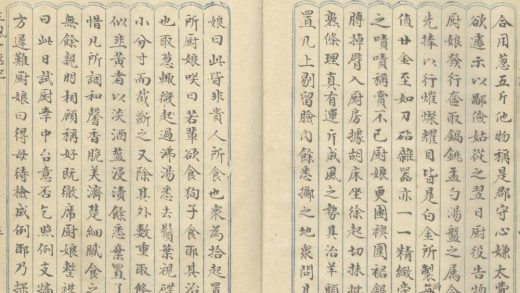 合用蔥五斤他物稱是郡守心嫌太費
欲遽示以鄙儉姑從之翌日厨役告物
厨娘發行奩取鍋銚盂勺湯盤之属令
先捧以行燦爛耀目皆是白金所製
值廿金至如刀砧雜器亦一一精緻
之嘖嘖稱賞不已厨娘更團襖圍裙銀
膊掉臂入厨房據胡床坐徐起切抹批
熟條理真有運斤成風之勢其治羊頭
置几上剔留臉肉餘悉擲之地衆問其
娘曰此皆非貴人所食也衆為拾起置
所厨娘咲曰若輩欲食狗子食耶其治
也取葱輒微起過沸湯悉去鬚葉視碟
小分寸而裁斷之又除其外數重取條
似韭黃者以淡酒盬浸漬餘悉棄置了
惜凡所調和馨香脆美濟楚細膩食之
無餘親朋相顧稱好既徹席厨娘整襟
曰此日試厨幸中台意否乞照例支犒
方遲難厨娘曰得毋待檢成例耶乃探